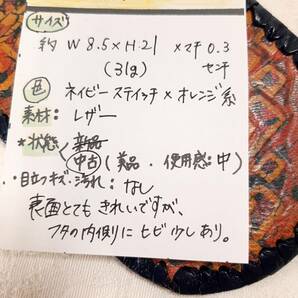 サイズ
約 W 8.5 × H.21 × マチ 0.3
(31g) センチ
色 ネイビーステイッチ × オレンジ系
素材: レザー
* 状態 新品
中古 (美品 ・ 使用感: 中)
・目立つキズ・汚れ: なし
表面とてもきれいですが、
フタの内側にヒビ少しあり。